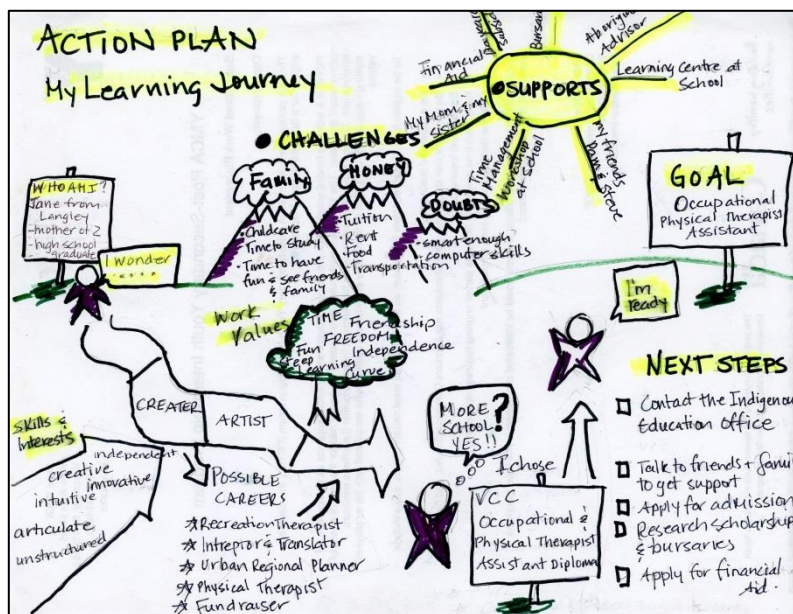 ACTION PLAN
My Learning Journey
SUPPORTS
Financial Aid
Bursar
Advisor
Learning Centre at
School
My Mom & my
Sister
Time
Management
Workshop
at School
my friends
Pam & Steve
CHALLENGES
Family
- Childcare
Time to Study
- Time to have
fun & see friends
& family
MONEY
- Tuition
- Rent
- Food
- Transportation
DOUBTS
- smart enough
- computer skills
GOAL
Occupational
Physical Therapist
Assistant
WHO AM I?
Jane from
Langley
- mother of 2
- high school
graduate
I wonder
.....
Work
Values
TIME Friendship
Fun FREEDOM
Independence
Steep
Learning
Curve
I'm
Ready
CREATER
ARTIST
Skills &
Interests
independent
creative
innovative
intuitive
articulate
unstructured
POSSIBLE
CAREERS
Recreation Therapist
Intreptor & Translator
Urban Regional Planner
Physical Therapist
Fundraiser
MORE
SCHOOL
YES!!
?
I chose
VCC
Occupational &
Physical Therapist
Assistant Diploma
NEXT STEPS
Contact the Indigenou
Education Office
Talk to friends + famil
to get support
Apply for admission
Research scholarship
& bursaries
Apply for financial
Aid.